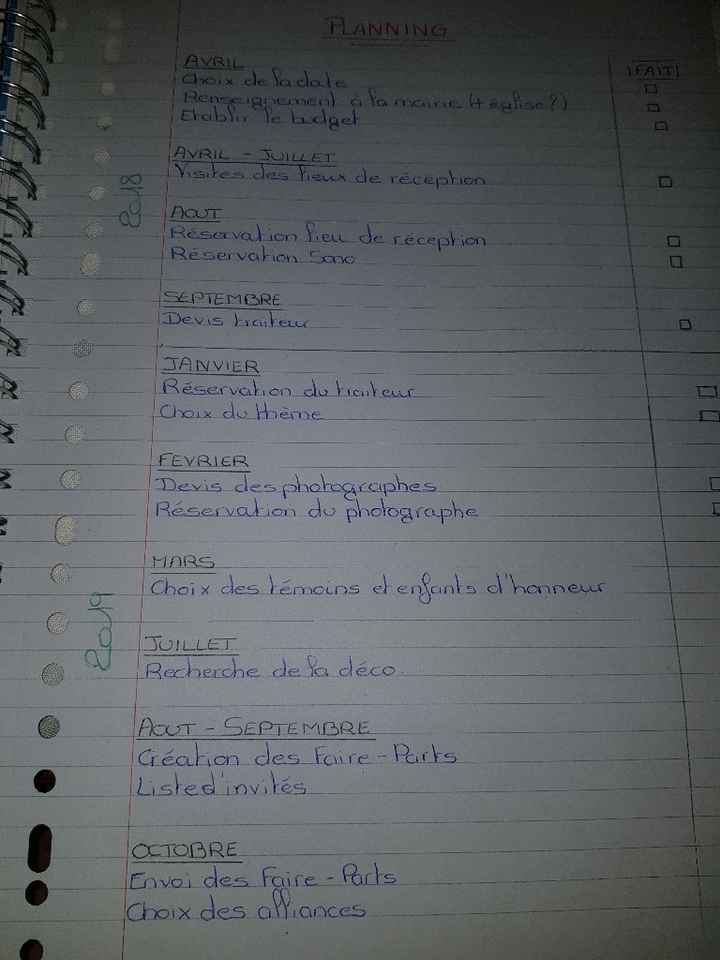 PLANNING
AVRIL
FAIT
Choix de la date
Renseignement à la mairie (+ église?)
Etablir le budget
AVRIL - JUILLET
Visites des lieux de réception
2018
AOUT
Réservation lieu de réception
Réservation Sono
SEPTEMBRE
Devis traiteur
JANVIER
Réservation du traiteur
Choix du thème
FEVRIER
Devis des photographes
Réservation du photographe
MARS
Choix des témoins et enfants d'honneur
2019
JUILLET
Recherche de la déco
AOUT - SEPTEMBRE
Création des Faire-Parts
Liste d'invités
OCTOBRE
Envoi des Faire-Parts
Choix des alliances